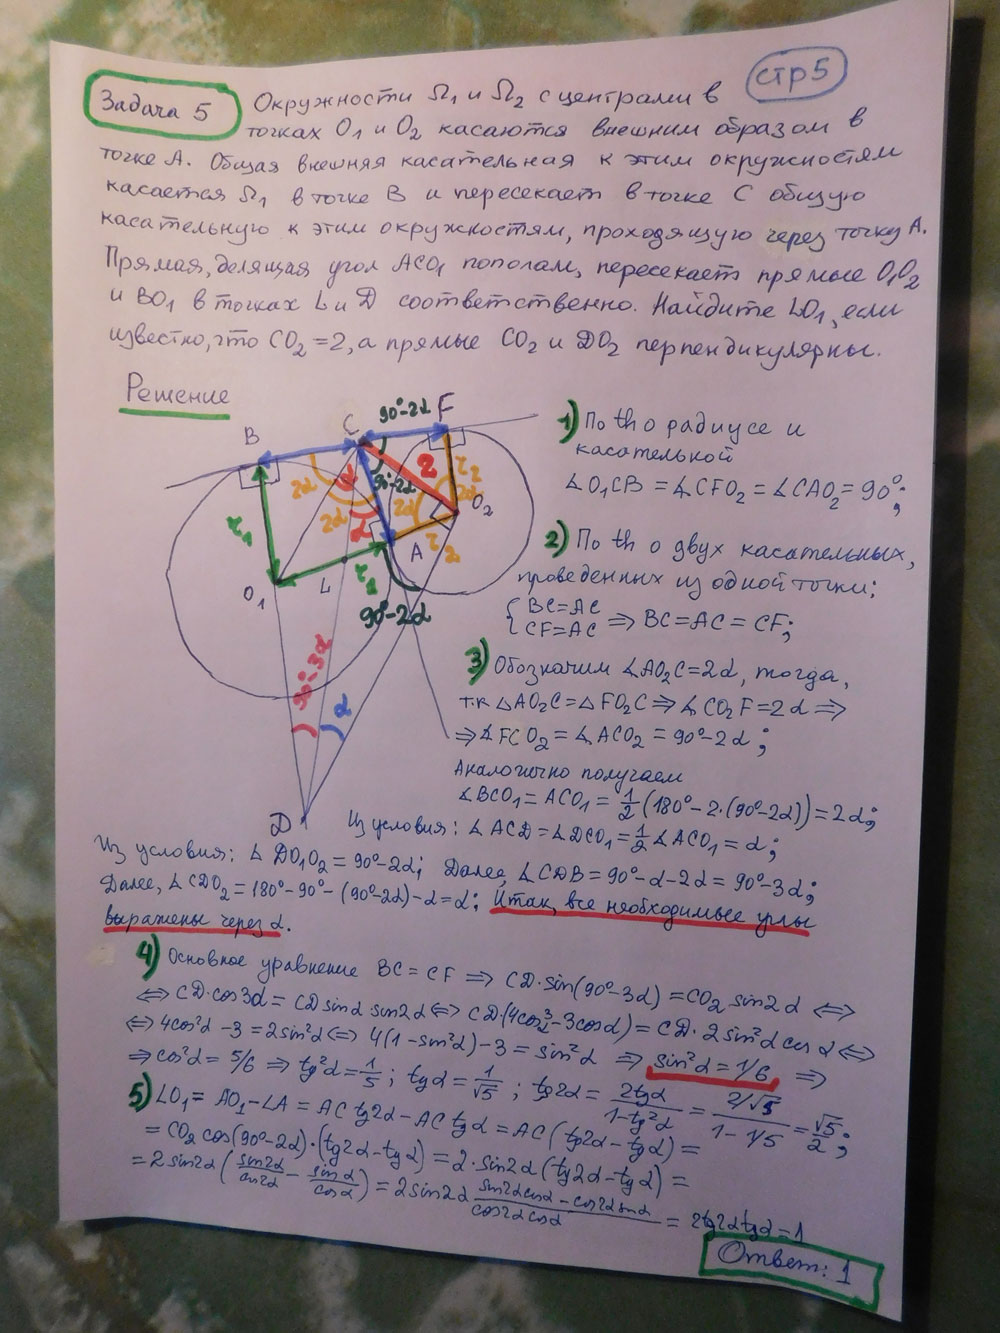 Задача 5
стр 5
Окружности Ω₁ и Ω₂ с центрами в
точках O₁ и O₂ касаются внешним образом в
точке A. Общая внешняя касательная к этим окружностям
касается Ω₁ в точке B и пересекает в точке C общую
касательную к этим окружностям, проходящую через точку A.
Прямая, делящая угол ACO₁ пополам, пересекает прямые O₁O₂
и BO₁ в точках L и D соответственно. Найдите LO₁, если
известно, что CO₂ = 2, а прямые CO₂ и DO₂ перпендикулярны.
Решение
B
C
90°-2α
F
2α
2α
α
α
90°-2α
2
2α
2α
r₂
O₂
r₁
A
r₂
O₁
L
r₁
90°-2α
90°-3α
α
D
1) По th о радиусе и
касательной
∡O₁CB = ∡CFO₂ = ∡CAO₂ = 90°;
2) По th о двух касательных,
проведенных из одной точки;
{BC=AC
CF=AC ⇒ BC=AC=CF;
3) Обозначим ∡AO₂C=2α, тогда,
т.к △AO₂C=△FO₂C ⇒ ∡CO₂F=2α ⇒
⇒ ∡FCO₂ = ∡ACO₂ = 90°-2α;
Аналогично получаем
∡BCO₁ = ACO₁ = 1/2 (180°-2·(90°-2α)) = 2α;
Из условия: ∡ACD = ∡DCO₁ = 1/2 ∡ACO₁ = α;
Из условия: ∡DO₁O₂ = 90°-2α; Далее, ∡CDB = 90°-α-2α = 90°-3α;
Далее, ∡CDO₂ = 180°-90°-(90°-2α)-α=α; Итак, все необходимые углы
выражены через α.
4) Основное уравнение BC = CF ⇒ CD·sin(90°-3α) = CO₂ sin2α ⇔
⇔ CD·cos3α = CD sinα sin2α ⇔ CD·(4cos³α-3cosα) = CD·2sin²α cosα ⇔
⇔ 4cos²α-3 = 2sin²α ⇔ 4(1-sin²α)-3 = sin²α ⇒ sin²α = 1/6 ⇒
⇒ cos²α = 5/6 ⇒ tg²α = 1/5; tgα = 1/√5; tg2α = 2tgα/(1-tg²α) = (2/√5)/(1-1/5) = √5/2;
5) LO₁ = AO₁-LA = AC tg2α - AC tgα = AC(tg2α - tgα) =
= CO₂ cos(90°-2α)·(tg2α-tgα) = 2·sin2α(tg2α-tgα) =
= 2sin2α (sin2α/cos2α - sinα/cosα) = 2sin2α (sin2αcosα-cos2αsinα)/(cos2αcosα) = 2tg2αtgα=1
Ответ: 1